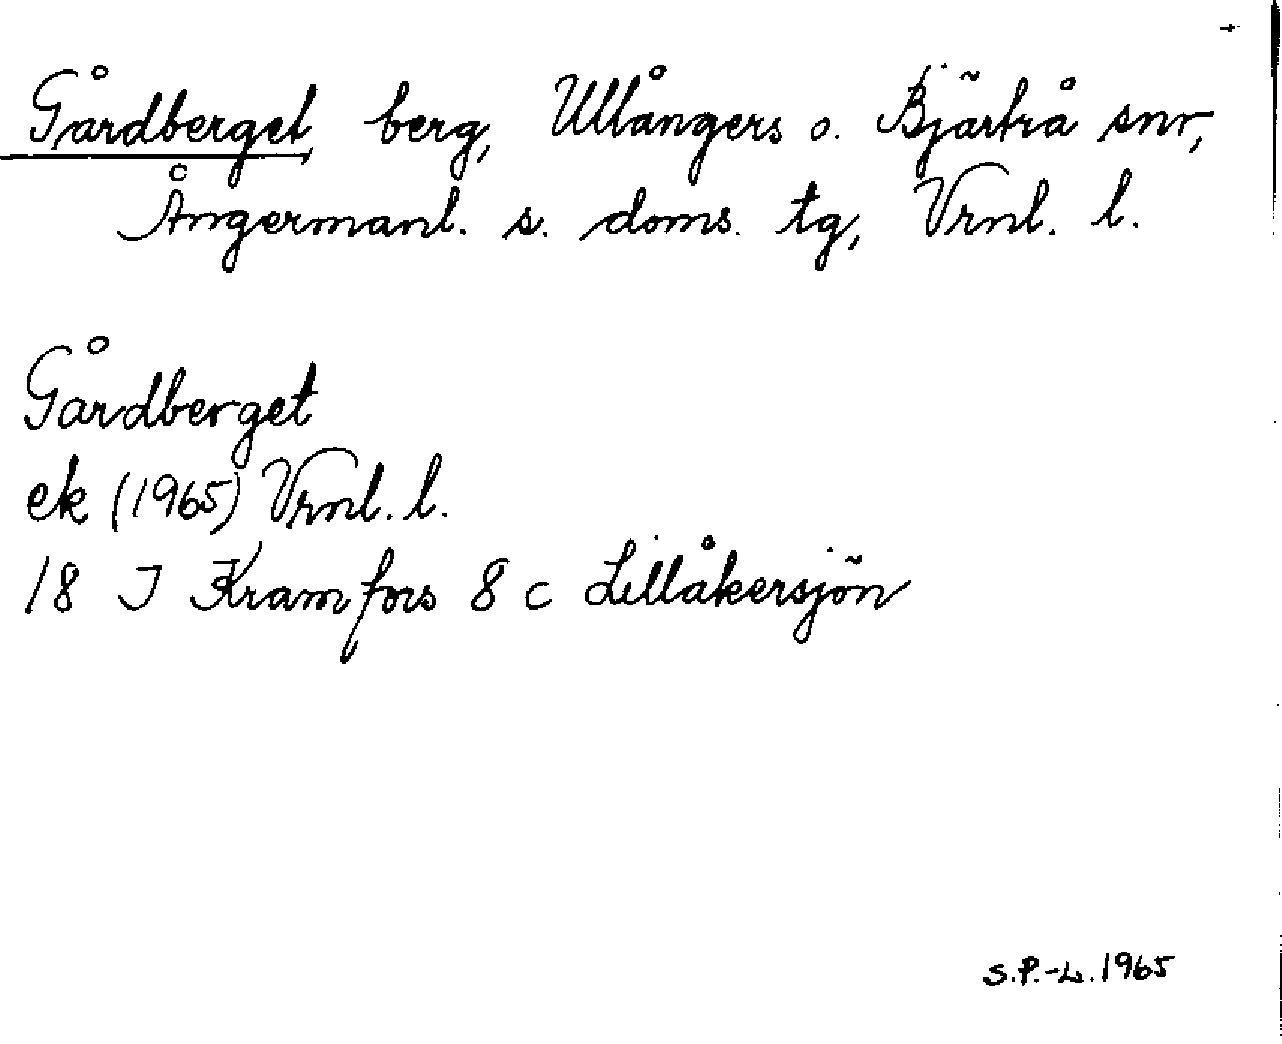 Gårdberget, berg, Ullångers o. Bjärtrå snr,
Ångermanl. s. doms. tg, Vrnl. l.
Gårdberget
ek (1965) Vrnl. l.
18 J Kramfors 8 c Lillåkersjön
S.P.-L. 1965